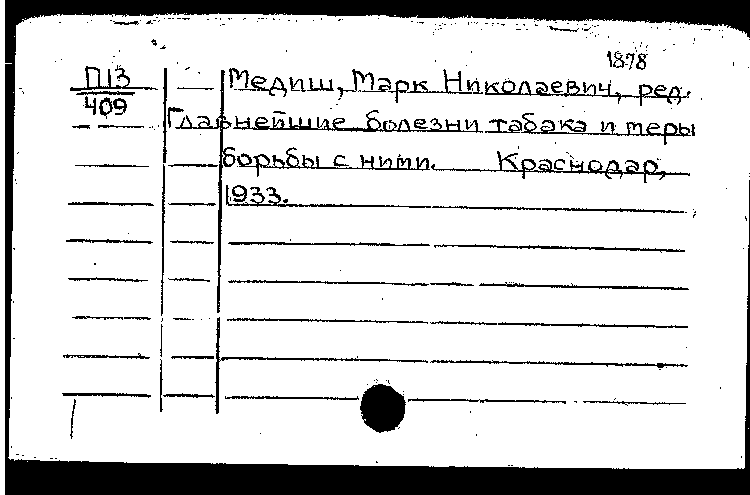 1878
П13
409
Медиш, Марк Николаевич, ред.
Главнейшие болезни табака и меры
борьбы с ними. Краснодар,
1933.